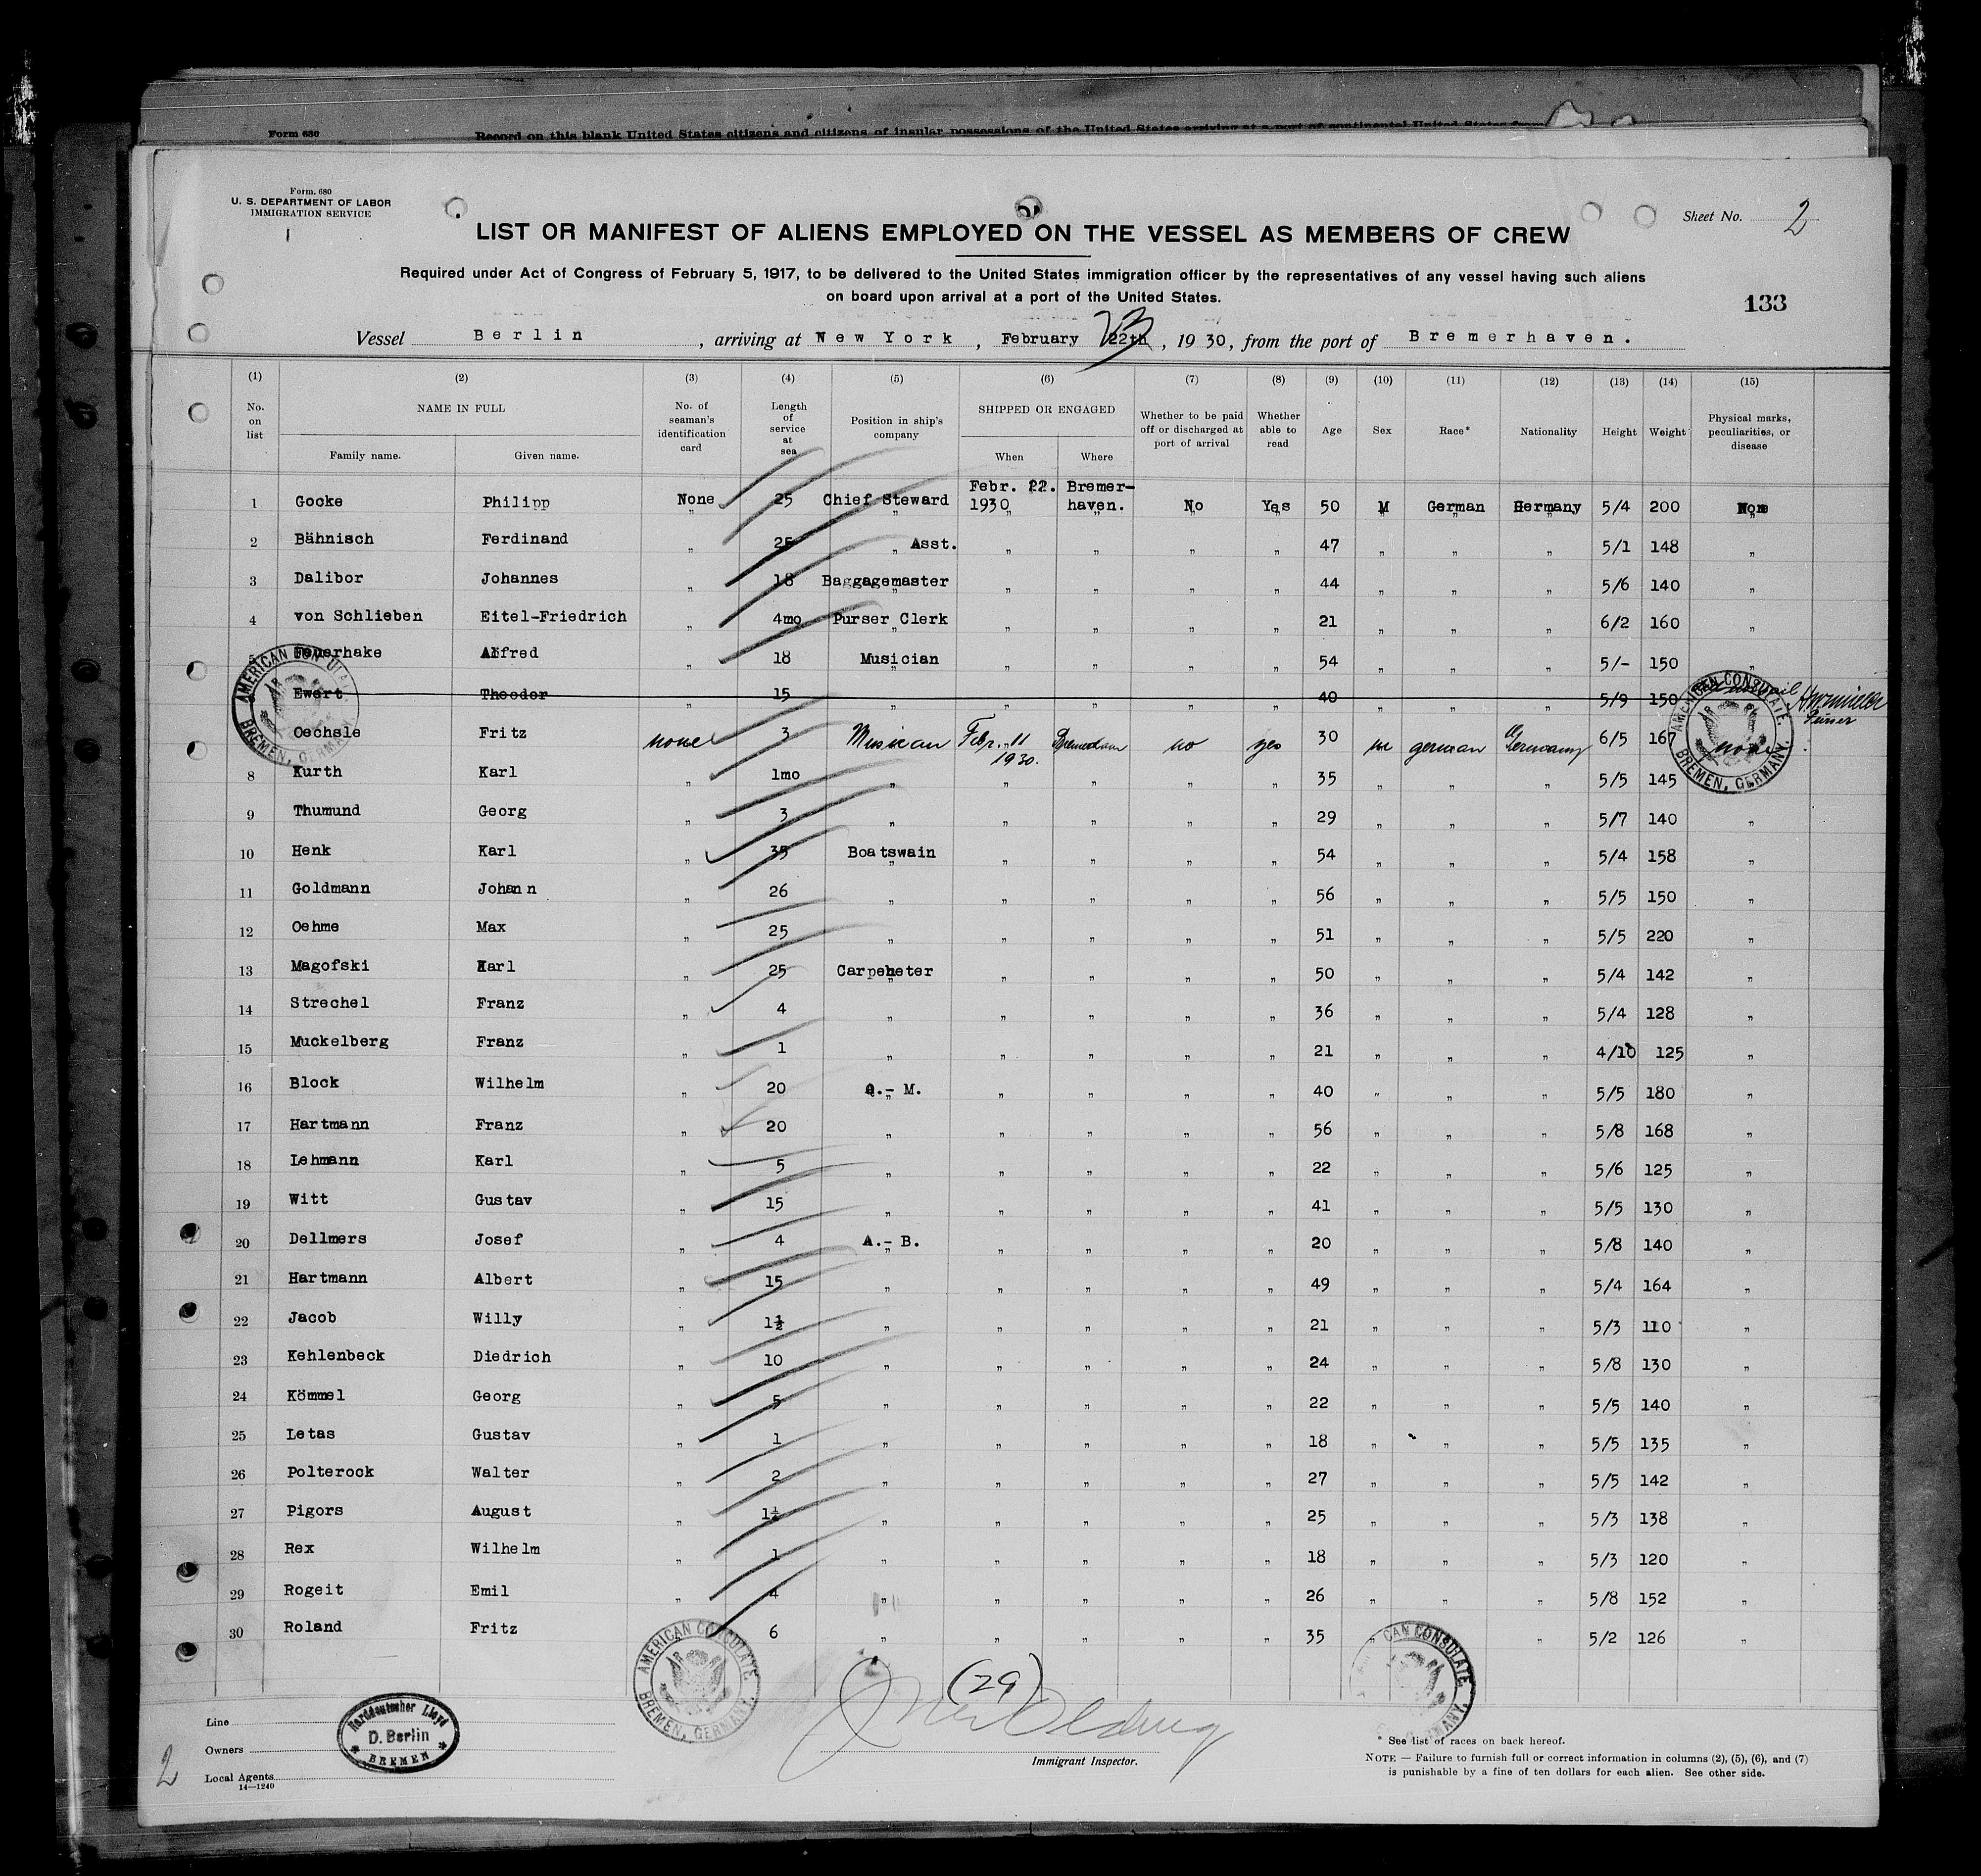 Form 630
Record on this blank United States citizens and citizens of insular possessions of the United States arriving at a port of continental United States from
Form. 680
U. S. DEPARTMENT OF LABOR
IMMIGRATION SERVICE
Sheet No. 2
LIST OR MANIFEST OF ALIENS EMPLOYED ON THE VESSEL AS MEMBERS OF CREW
Required under Act of Congress of February 5, 1917, to be delivered to the United States immigration officer by the representatives of any vessel having such aliens
on board upon arrival at a port of the United States.
133
Vessel Berlin, arriving at New York, February 22th 23, 1930, from the port of Bremerhaven.
(1) (2) (3) (4) (5) (6) (7) (8) (9) (10) (11) (12) (13) (14) (15)
No. on list NAME IN FULL Family name. Given name. No. of seaman's identification card Length of service at sea Position in ship's company SHIPPED OR ENGAGED When Where Whether to be paid off or discharged at port of arrival Whether able to read Age Sex Race* Nationality Height Weight Physical marks, peculiarities, or disease
1 Gocke Philipp None 25 Chief Steward Febr. 22. 1930 Bremer-haven. No Yes 50 M German Germany 5/4 200 None
2 Bähnisch Ferdinand " 25 " Asst. " " " " 47 " " " 5/1 148 "
3 Dalibor Johannes " 18 Baggagemaster " " " " 44 " " " 5/6 140 "
4 von Schlieben Eitel-Friedrich " 4mo Purser Clerk " " " " 21 " " " 6/2 160 "
5 Feuerhake Alfred " 18 Musician " " " " 54 " " " 5/- 150 "
Ewert Theodor " 15 " " " " " 40 " " " 5/9 150
Oechsle Fritz none 3 Musican Febr. 11 1930. Bremerhaven no yes 30 m german Germany 6/5 167 none
8 Kurth Karl " 1mo " " " " " 35 " " " 5/5 145
9 Thumund Georg " 3 " " " " " 29 " " " 5/7 140 "
10 Henk Karl " 35 Boatswain " " " " 54 " " " 5/4 158 "
11 Goldmann Johann " 26 " " " " " 56 " " " 5/5 150 "
12 Oehme Max " 25 " " " " " 51 " " " 5/5 220 "
13 Magofski Karl " 25 Carpeneter " " " " 50 " " " 5/4 142 "
14 Strechel Franz " 4 " " " " " 36 " " " 5/4 128 "
15 Muckelberg Franz " 1 " " " " " 21 " " " 4/10 125 "
16 Block Wilhelm " 20 Q.- M. " " " " 40 " " " 5/5 180 "
17 Hartmann Franz " 20 " " " " " 56 " " " 5/8 168 "
18 Lehmann Karl " 5 " " " " " 22 " " " 5/6 125 "
19 Witt Gustav " 15 " " " " " 41 " " " 5/5 130 "
20 Dellmers Josef " 4 A.- B. " " " " 20 " " " 5/8 140 "
21 Hartmann Albert " 15 " " " " " 49 " " " 5/4 164 "
22 Jacob Willy " 1½ " " " " " 21 " " " 5/3 110 "
23 Kehlenbeck Diedrich " 10 " " " " " 24 " " " 5/8 130 "
24 Kömmel Georg " 5 " " " " " 22 " " " 5/5 140 "
25 Letas Gustav " 1 " " " " " 18 " " " 5/5 135 "
26 Polterock Walter " 2 " " " " " 27 " " " 5/5 142 "
27 Pigors August " 1½ " " " " " 25 " " " 5/3 138 "
28 Rex Wilhelm " 1 " " " " " 18 " " " 5/3 120 "
29 Rogeit Emil " 4 " " " " " 26 " " " 5/8 152 "
30 Roland Fritz " 6 " " " " " 35 " " " 5/2 126 "
AMERICAN CONSULATE. BREMEN, GERMANY.
(29)
Line
Owners
Local Agents
14—1240
Norddeutscher Lloyd
D. Berlin
BREMEN
2
Immigrant Inspector.
* See list of races on back hereof.
NOTE — Failure to furnish full or correct information in columns (2), (5), (6), and (7)
is punishable by a fine of ten dollars for each alien. See other side.